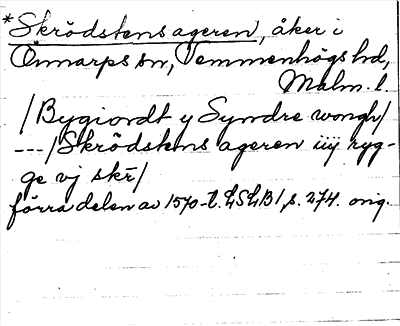 *Skrödstensageren, åker i
Önnarps sn, Vemmenhögs hd,
Malm. l.
/Bygiordt y Syndre wongh/
---/Skrödstens ageren iiij ryg-
ge vj skr̄/
förra delen av 1570-t. LSLB1, s. 274. orig.